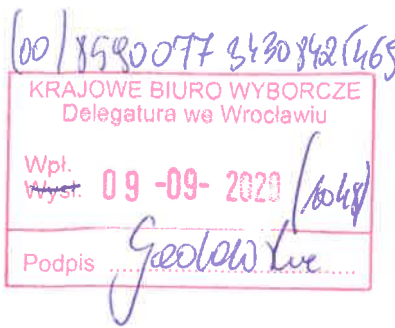 (00) 8590077 3430842(469
KRAJOWE BIURO WYBORCZE
Delegatura we Wrocławiu
Wpł.
Wysł. 09 -09- 2020
Podpis